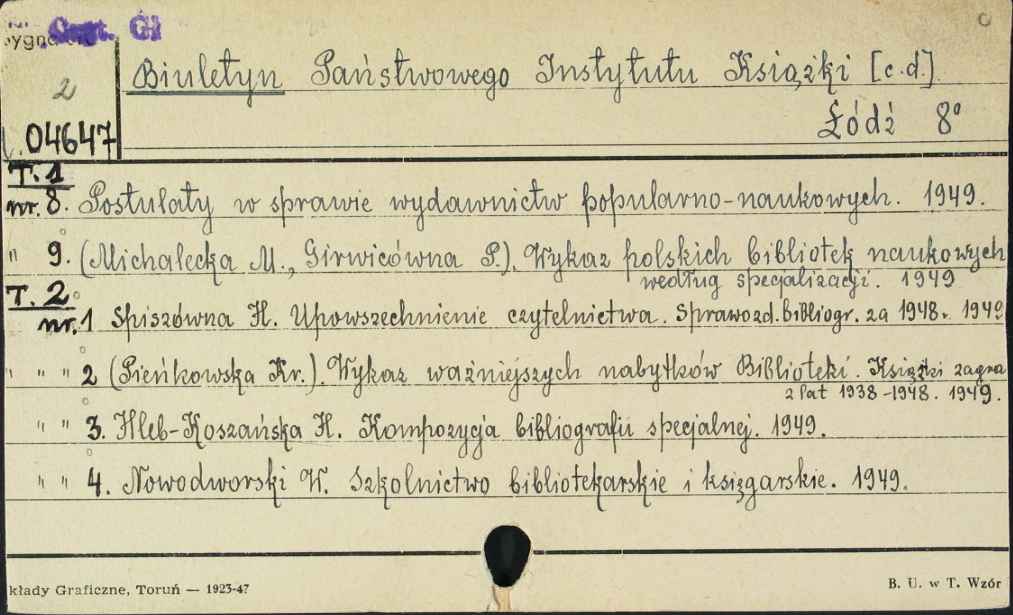 Czyt. Gł
2
04647
Biuletyn Państwowego Instytutu Książki [c.d.]
Łódź 8°
T. 1
nr. 8. Postulaty w sprawie wydawnictw popularno-naukowych. 1949.
" 9. (Michalecka M., Girwicówna P.). Wykaz polskich bibliotek naukowych
według specjalizacji. 1949
T. 2
nr. 1 Spiszówna H. Upowszechnienie czytelnictwa. Sprawozd. bibliogr. za 1948. 1949
" " " 2 (Pieńkowska Kr.). Wykaz ważniejszych nabytków Biblioteki. Książki zagra
z lat 1938-1948. 1949.
" " 3. Hleb-Koszańska H. Kompozycja bibliografii specjalnej. 1949.
" " 4. Nowodworski W. Szkolnictwo bibliotekarskie i księgarskie. 1949.
kłady Graficzne, Toruń — 1923-47
B. U. w T. Wzór